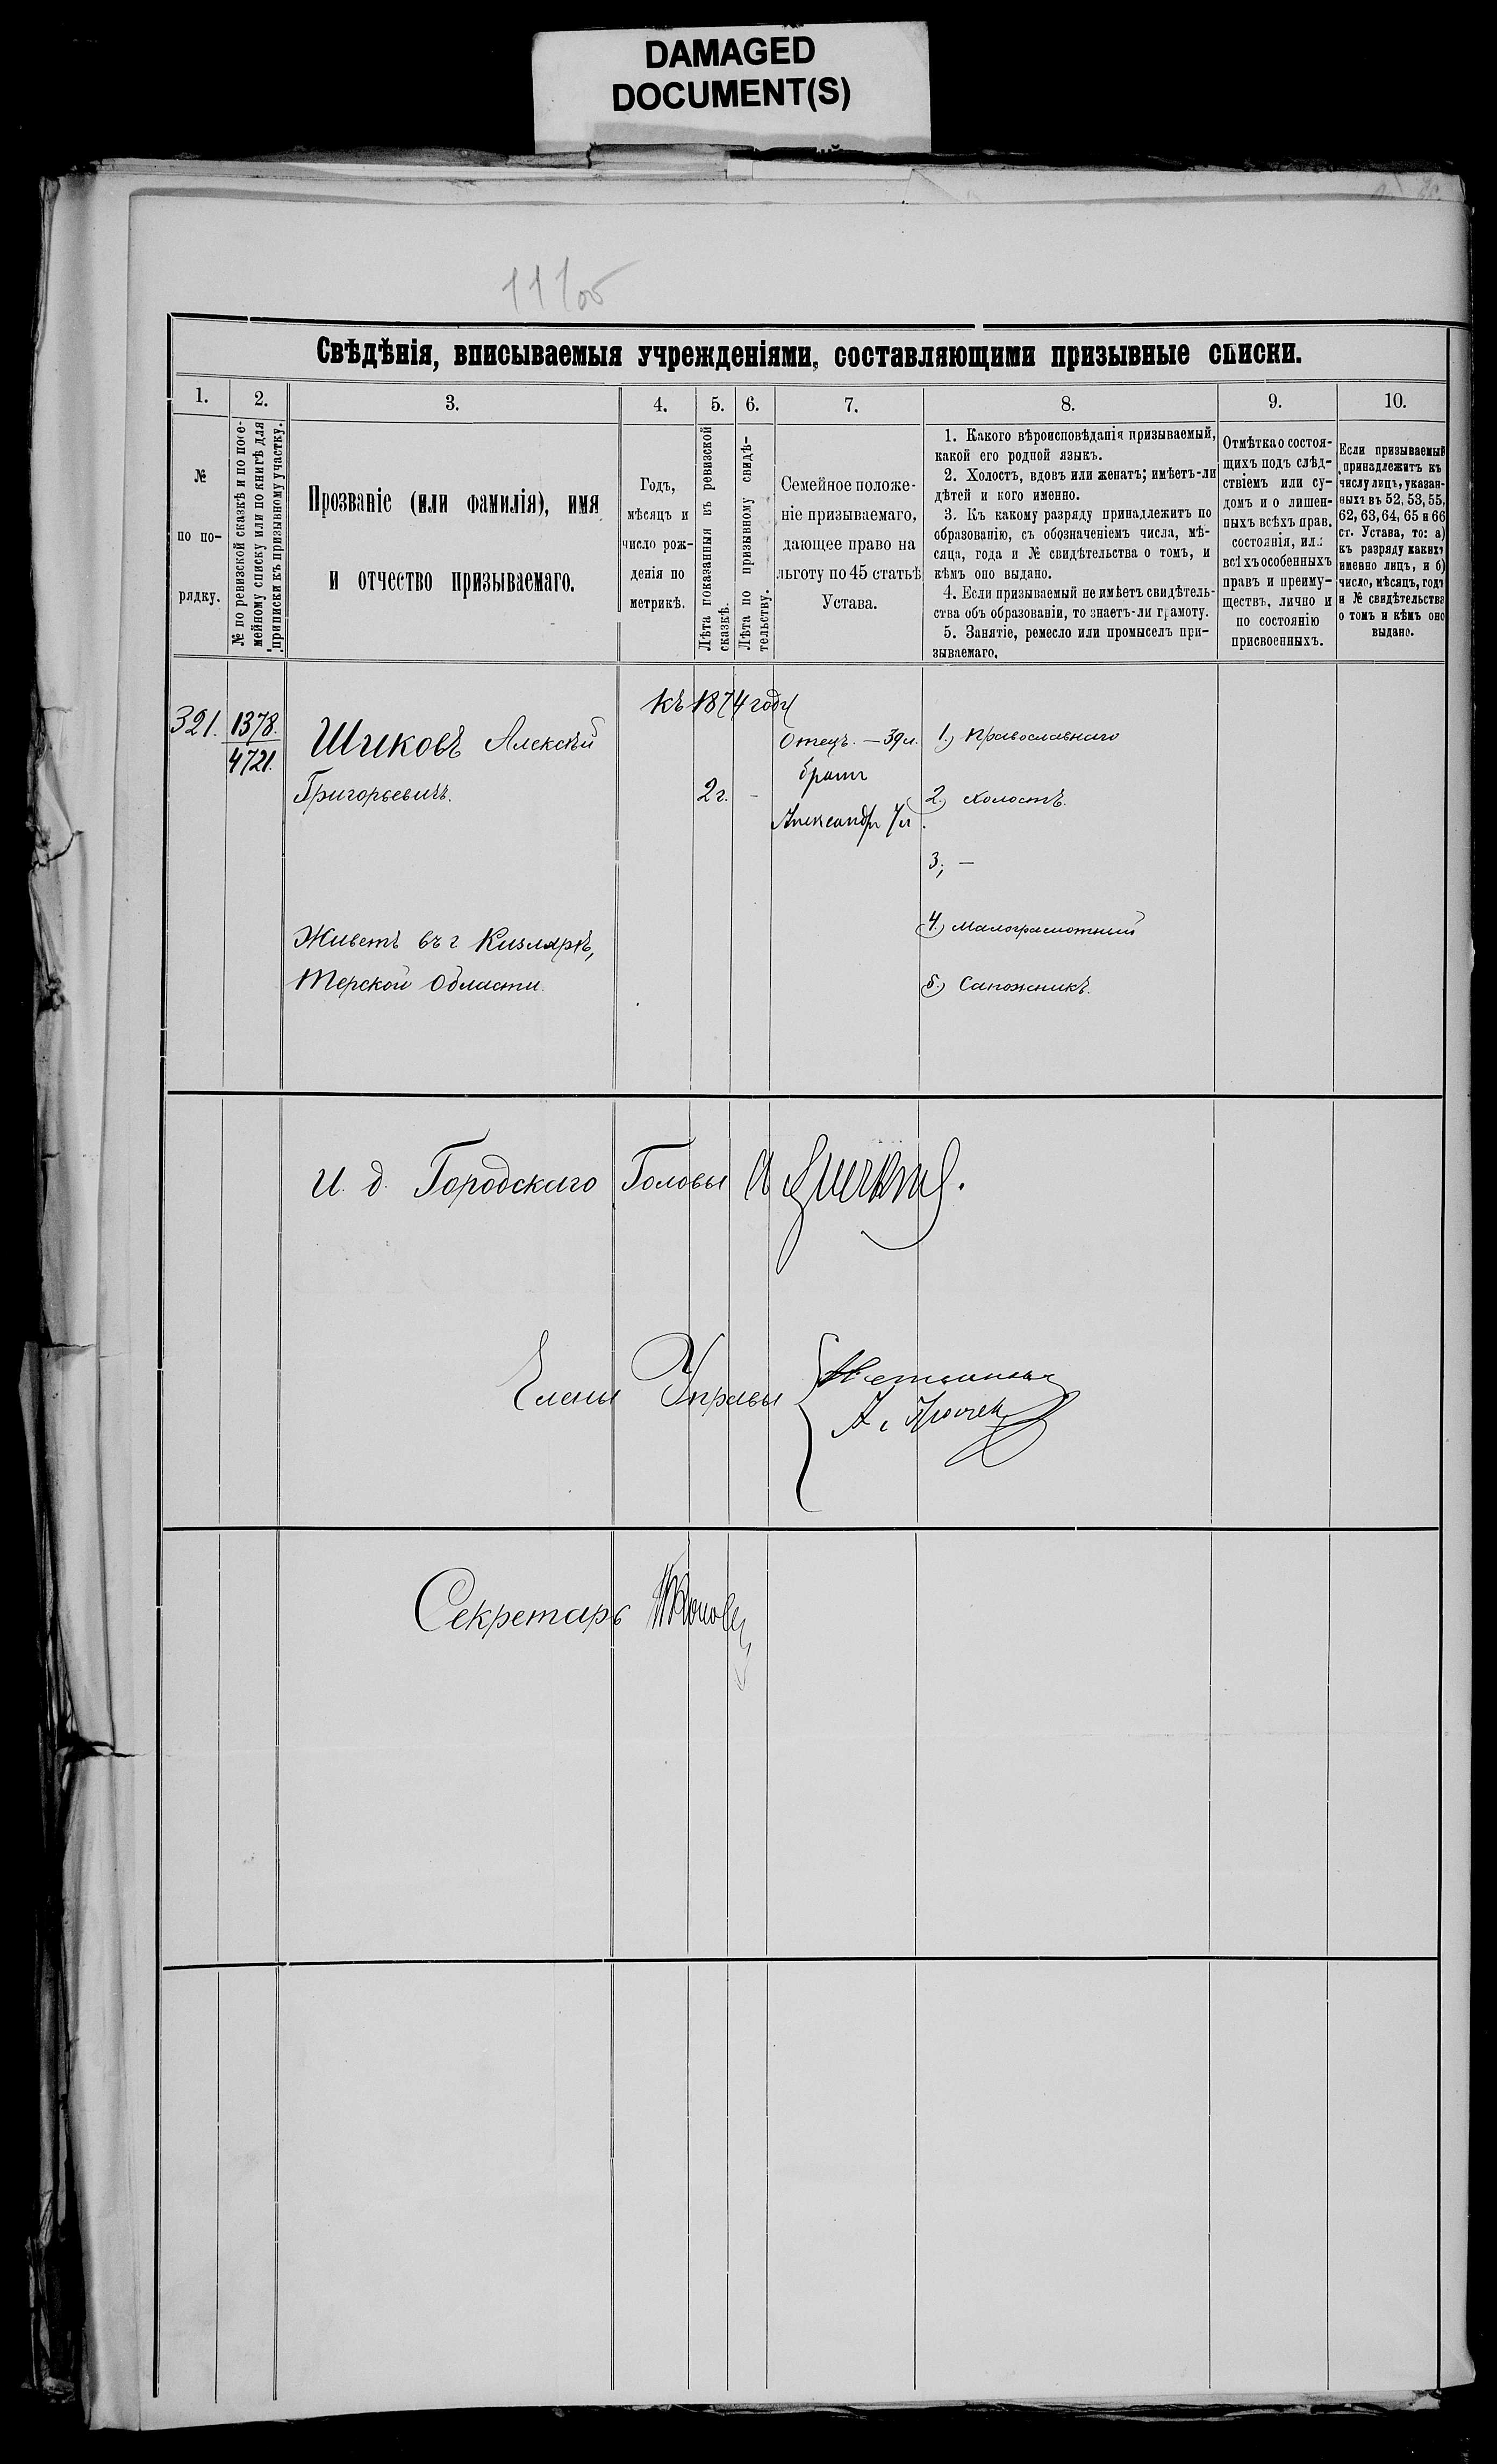 DAMAGED
DOCUMENT(S)
Свѣдѣнія, вписываемыя учрежденіями, составляющими призывные списки.
1.
2.
3.
4.
5.
6.
7.
8.
9.
10.
№
по по-
рядку.
№ по ревизской сказкѣ и по посе-
мейному списку или по книгѣ для
приписки къ призывному участку.
Прозваніе (или фамилія), имя
и отчество призываемаго.
Годъ,
мѣсяцъ и
число рож-
денія по
метрикѣ.
Лѣта показанныя въ ревизской
сказкѣ.
Лѣта по призывному свидѣ-
тельству.
Семейное положе-
ніе призываемаго,
дающее право на
льготу по 45 статьѣ
Устава.
1. Какого вѣроисповѣданія призываемый,
какой его родной языкъ.
2. Холостъ, вдовъ или женатъ; имѣетъ-ли
дѣтей и кого именно.
3. Къ какому разряду принадлежитъ по
образованію, съ обозначеніемъ числа, мѣ-
сяца, года и № свидѣтельства о томъ, и
кѣмъ оно выдано.
4. Если призываемый не имѣетъ свидѣтель-
ства объ образованіи, то знаетъ-ли грамоту.
5. Занятіе, ремесло или промыселъ при-
зываемаго.
Отмѣтка о состоя-
щихъ подъ слѣд-
ствіемъ или су-
домъ и о лишен-
ныхъ всѣхъ прав.
состоянія, или
всѣхъ особенныхъ
правъ и преиму-
ществъ, лично и
по состоянію
присвоенныхъ.
Если призываемый
принадлежитъ къ
числу лицъ, указан-
ныхъ въ 52, 53, 55,
62, 63, 64, 65 и 66
ст. Устава, то: а)
къ разряду какихъ
именно лицъ, и б)
число, мѣсяцъ, годъ
и № свидѣтельства
о томъ и кѣмъ оно
выдано.
къ 1874 году
321. 1378. Шиковъ Алексѣй
4721.
Григорьевичъ.
2 г. -
Отецъ. — 39 л.
братъ
Александръ 7 л.
1.) Православнаго
2.) Холостъ.
3; —
4.) Малограмотный
5.) Сапожникъ.
Живетъ въ г. Кизлярѣ,
Терской Области.
И. д. Городскаго Головы
Члены Управы
Секретарь